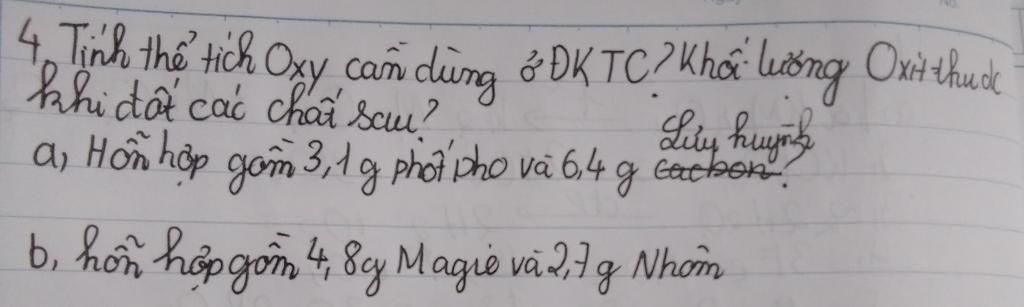 4, Tính thể tích Oxy cần dùng ở ĐKTC? Khối lường Oxit thu dc
khi đốt các chất sau?
a, Hỗn hợp gồm 3,1g phốt pho và 6,4 g cacbon Lưu huỳnh?
b, hỗn hợp gồm 4,8g Magiê và 2,7g Nhôm